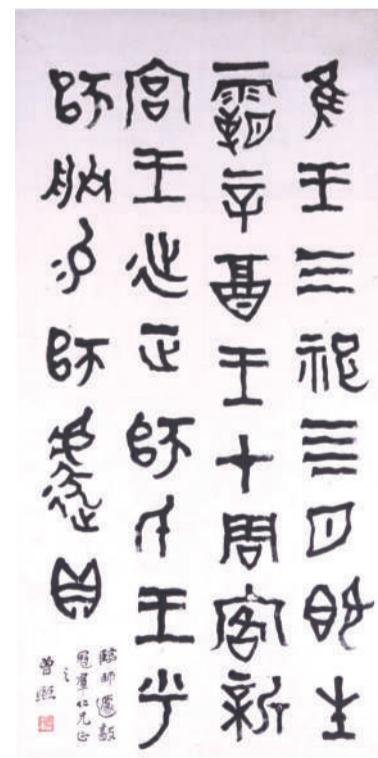 隹王三祀亖月既生
霸辛酉王才周客新
宮王延正師氏王乎
師朕易師遽貝
臨師遽敦
冠羣仁兄正
之
曾熙